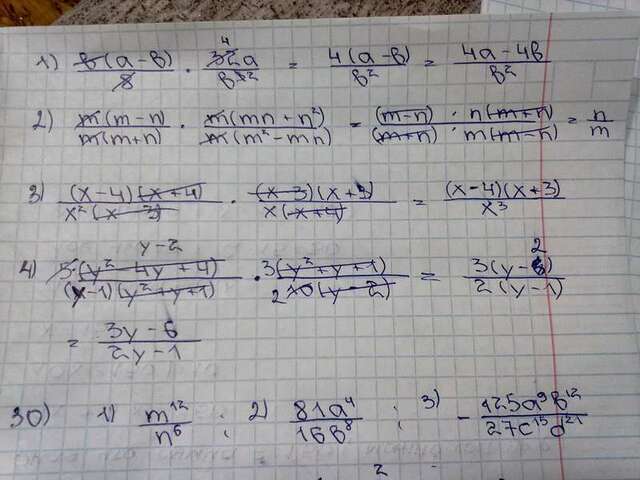 1) в(a-в)/8 · 4 32a/в³² = 4(a-в)/в² = 4a-4в/в²
2) m(m-n)/m(m+n) · m(mn+n²)/m(m²-mn) = (m-n) · n(m+n)/(m+n) · m(m-n) = n/m
3) (x-4)(x+4)/x²(x-3) · (x-3)(x+3)/x(x+4) = (x-4)(x+3)/x³
4) 5(y²-4y+4) y-2/(y-1)(y²+y+1) · 3(y²+y+1)/2 10(y-2) = 3(y-2)/2(y-1)
= 3y-6/2y-1
30) 1) m¹²/n⁶ ; 2) 81a⁴/16в⁸ ; 3) -125a⁹в¹²/27c¹⁵d²¹
2